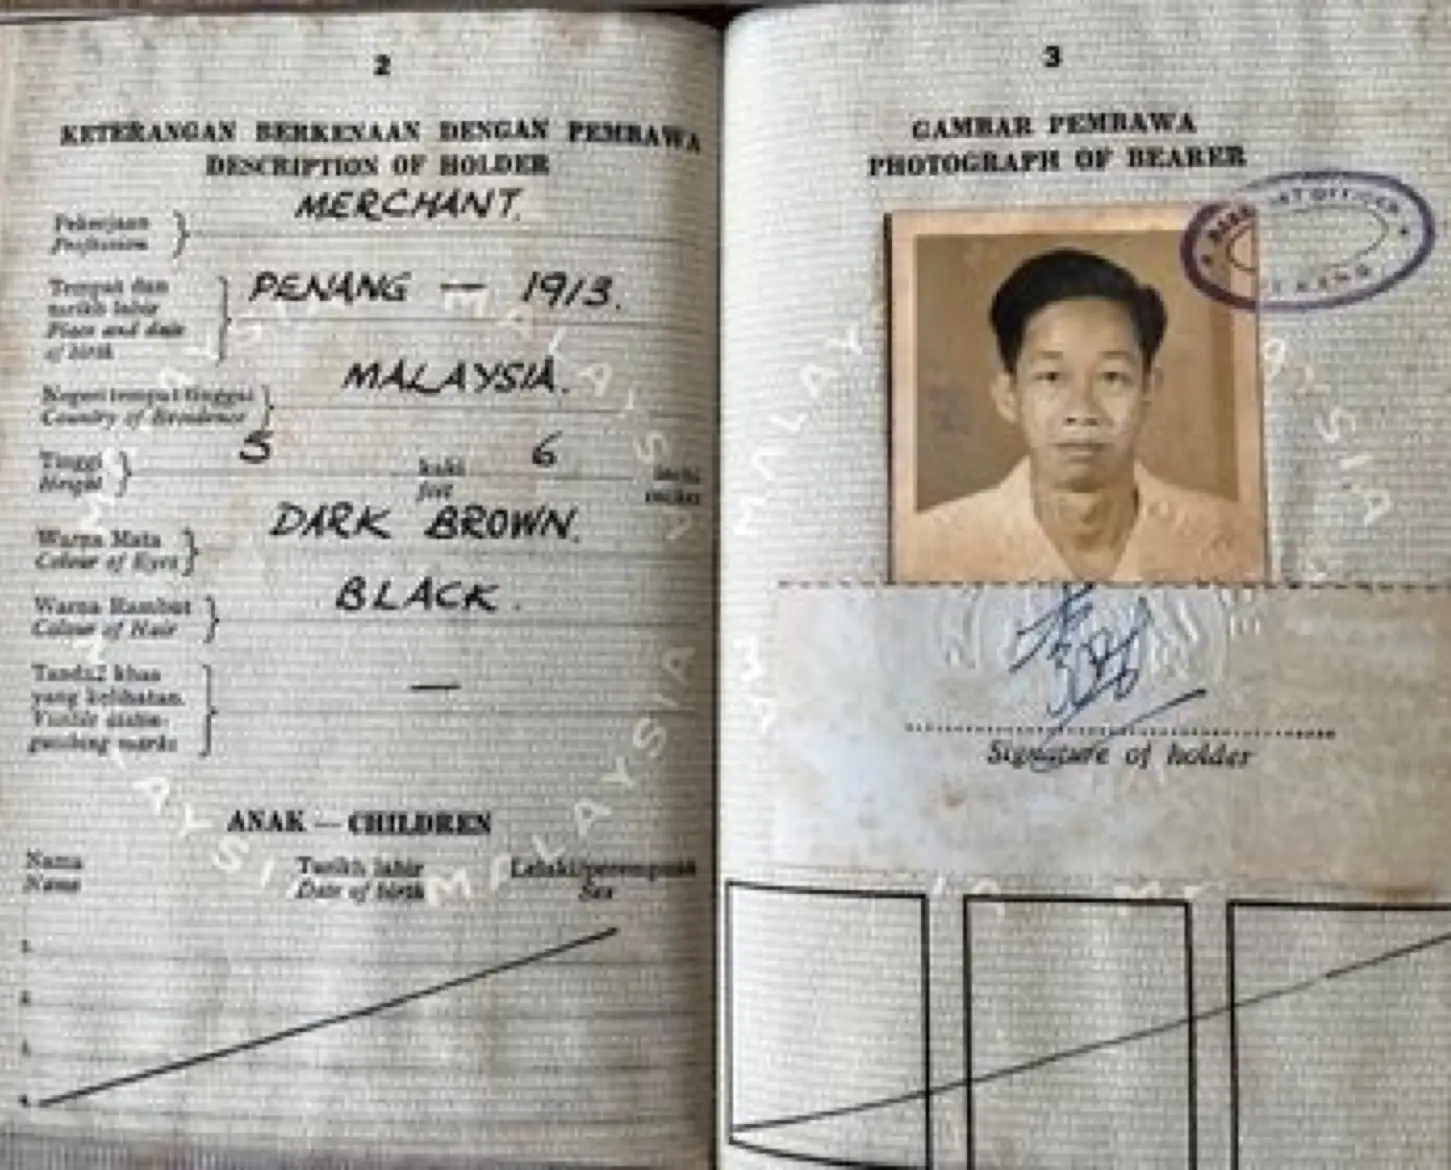 2
KETERANGAN BERKENAAN DENGAN PEMBAWA
DESCRIPTION OF HOLDER
Pekerjaan
Profession
MERCHANT.
Tempat dan
tarikh lahir
Place and date
of birth
PENANG — 1913.
Negeri tempat tinggal
Country of Residence
MALAYSIA.
Tinggi
Height
5 kaki 6 inchi
feet inches
Warna Mata
Colour of Eyes
DARK BROWN.
Warna Rambut
Colour of Hair
BLACK.
Tanda2 khas
yang kelihatan.
Visible distin-
guishing marks
—
ANAK — CHILDREN
Nama Tarikh lahir Lelaki/perempuan
Name Date of birth Sex
1.
2.
3.
4.
3
GAMBAR PEMBAWA
PHOTOGRAPH OF BEARER
Signature of holder
MALAYSIA